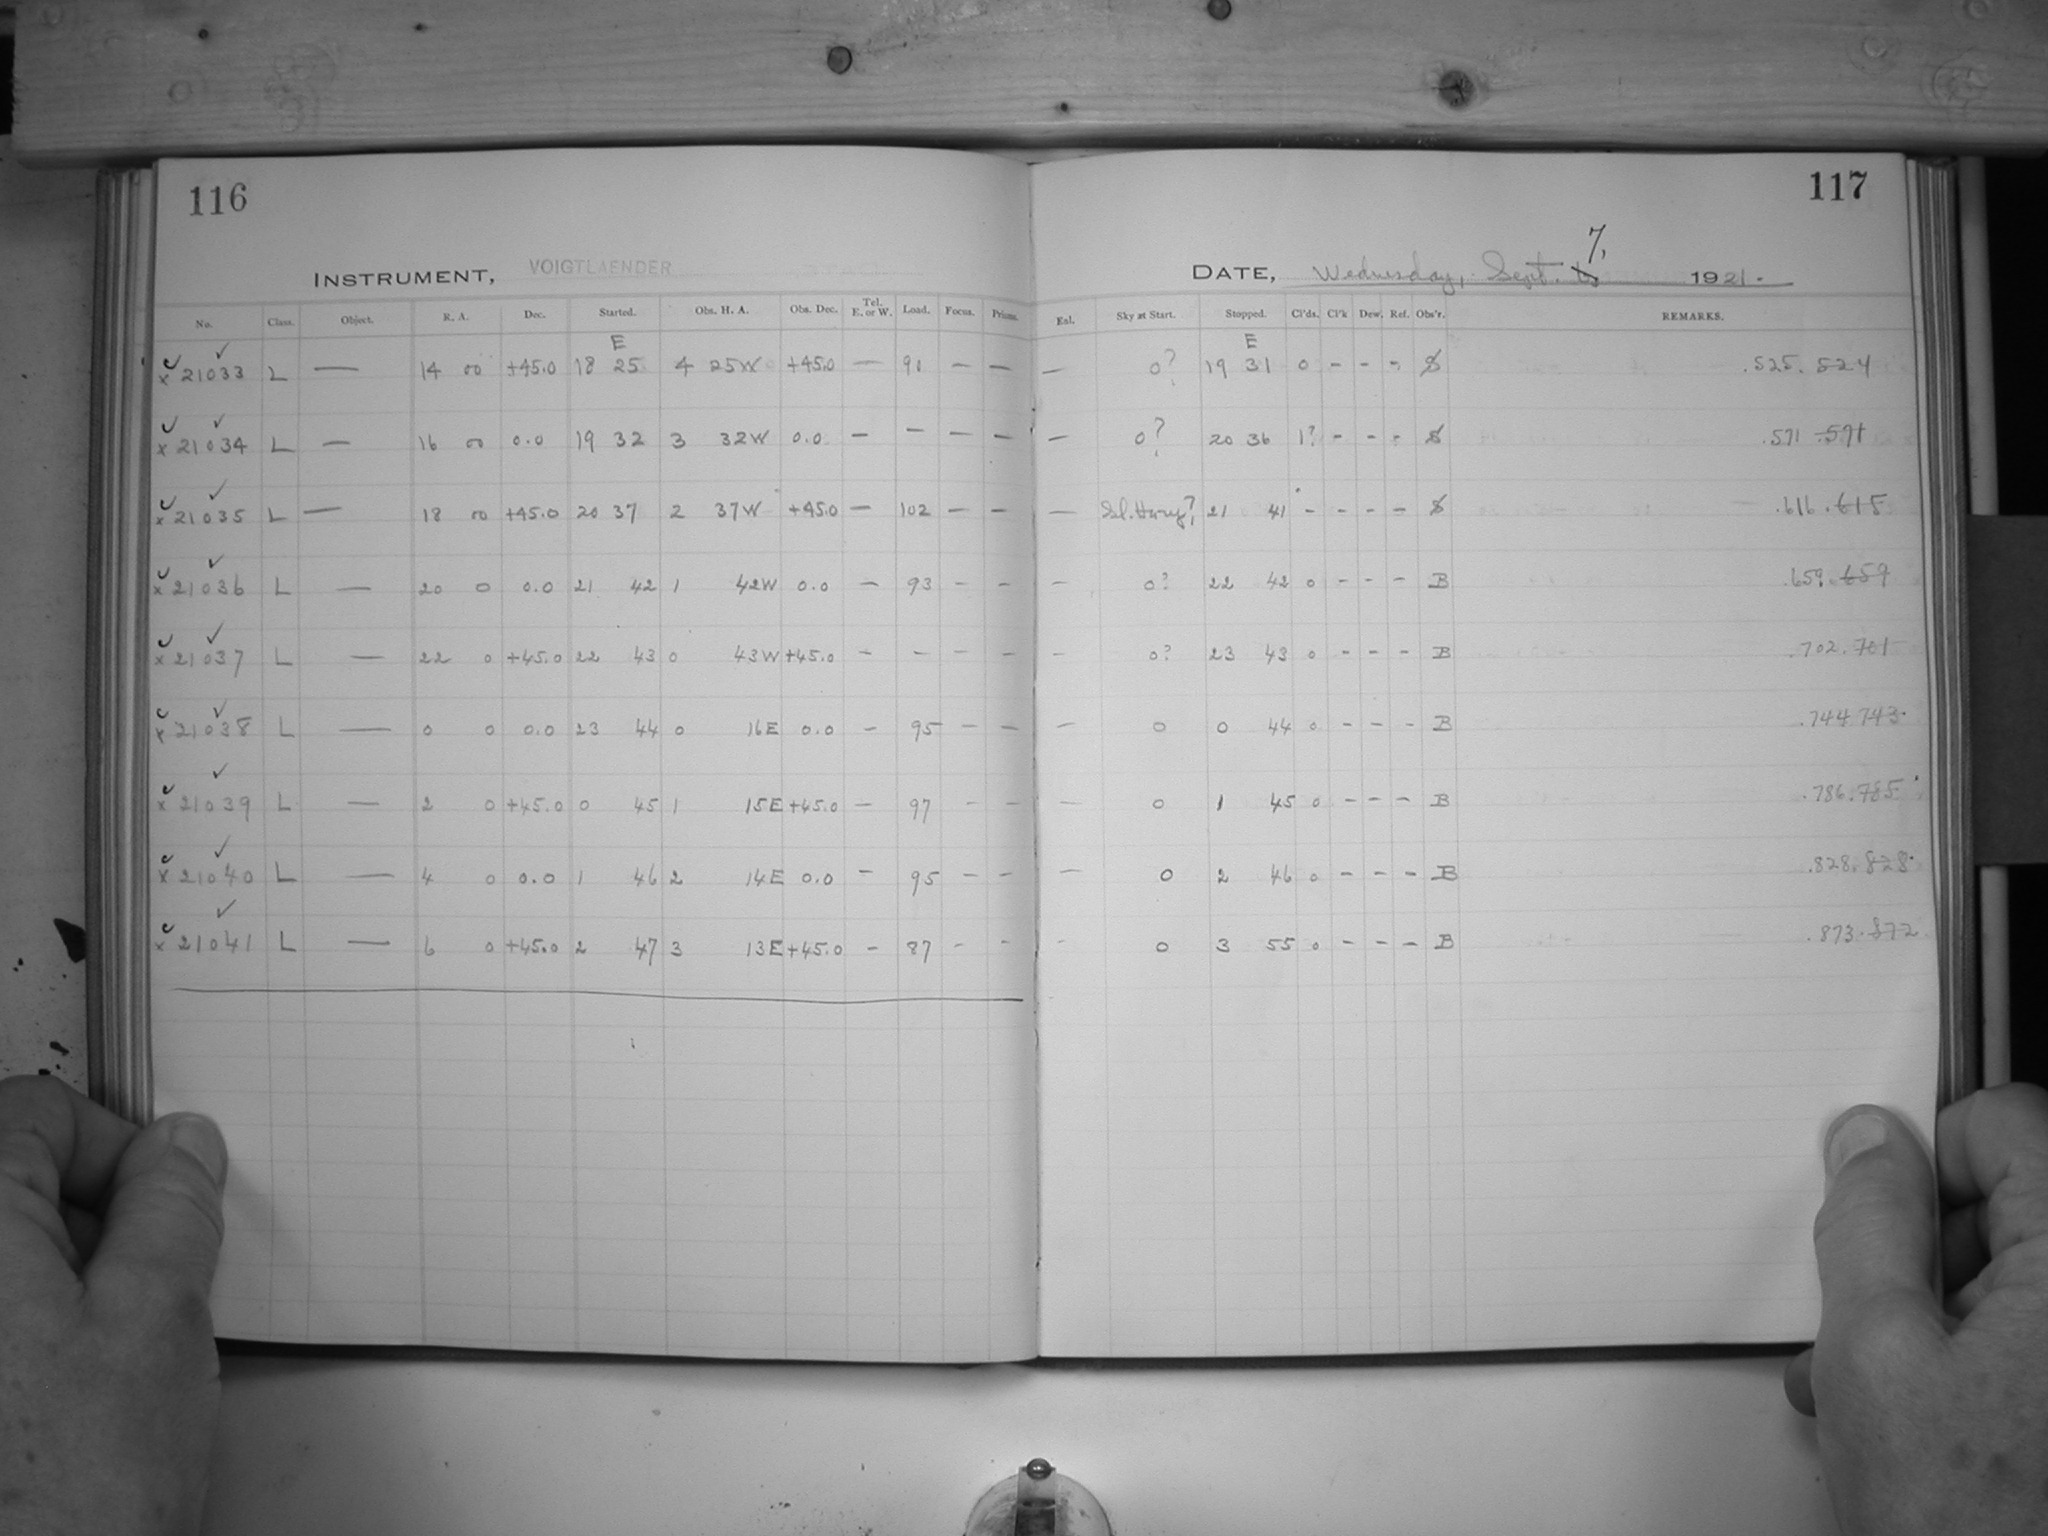 116
117
INSTRUMENT, VOIGTLAENDER
7,
DATE, Wednesday, Sept. 6 1921.
No. Class. Object. R. A. Dec. Started. Obs. H. A. Obs. Dec. Tel. E. or W. Load. Focus. Prisms. Exl. Sky at Start. Stopped. Cl'ds. Cl'k Dew. Ref. Obs'r. REMARKS.
E E
x 21033 L — 14 00 +45.0 18 25 4 25W +45.0 — 91 — — — 0? 19 31 0 - - - S .525. 524
x 21034 L — 16 00 0.0 19 32 3 32W 0.0 — — — — — 0? 20 36 1? - - - S .571 .571
x 21035 L — 18 00 +45.0 20 37 2 37W +45.0 — 102 — — — Sl. Hazy? 21 41 - - - - S .616 .615
x 21036 L — 20 0 0.0 21 42 1 42W 0.0 — 93 - - — 0? 22 42 0 - - - B .659. 659
x 21037 L — 22 0 +45.0 22 43 0 43W +45.0 - - - - - 0? 23 43 0 - - - B .702. 701
x 21038 L — 0 0 0.0 23 44 0 16E 0.0 - 95 - - — 0 0 44 0 - - - B .744 743.
x 21039 L — 2 0 +45.0 0 45 1 15E +45.0 — 97 - - — 0 1 45 0 - - - B .786. 785
x 21040 L — 4 0 0.0 1 46 2 14E 0.0 - 95 - - — 0 2 46 0 - - - B .828. 828.
x 21041 L — 6 0 +45.0 2 47 3 13E +45.0 - 87 - - - 0 3 55 0 - - - B .873. 872